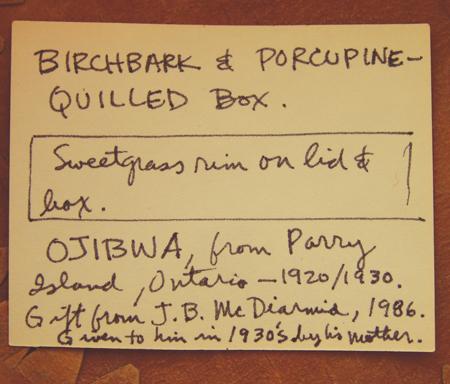 BIRCHBARK & PORCUPINE-
QUILLED BOX.
Sweetgrass rim on lid &
box.
OJIBWA, from Parry
Island, Ontario - 1920/1930.
Gift from J.B. McDiarmid, 1986.
Given to him in 1930's by his mother.